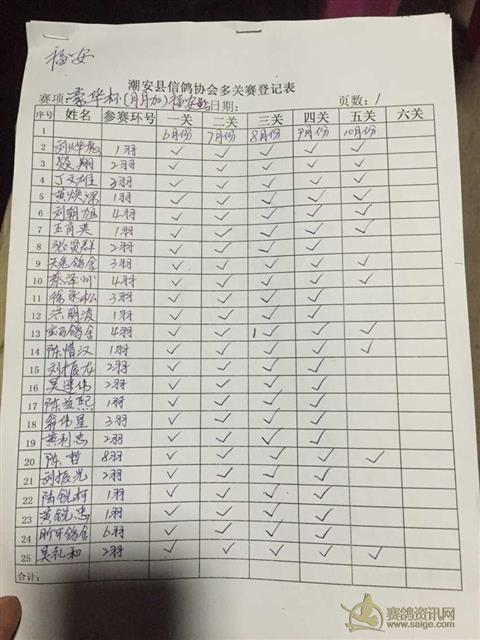 福安
潮安县信鸽协会多关赛登记表
赛项:豪华杯(月月加)福安 日期: 页数:1
序号 姓名 参赛环号 一关 二关 三关 四关 五关 六关
1 6月份 7月份 8月份 9月份 10月份
2 1羽 ✓ ✓ ✓ ✓ ✓
3 翔 2羽 ✓ ✓ ✓ ✓ ✓
4 丁文雄 3羽 ✓ ✓ ✓ ✓ ✓
5 黄焕深 1羽 ✓ ✓ ✓ ✓ ✓
6 刘朝旭 4羽 ✓ ✓ ✓ ✓ ✓
7 王肖英 1羽 ✓ ✓ ✓ ✓ ✓
8 张贤群 2羽 ✓ ✓ ✓ ✓
9 天意鸽舍 3羽 ✓ ✓ ✓ ✓ ✓
10 蔡泽 4羽 ✓ ✓ ✓ ✓ ✓
11 徐永松 3羽 ✓ ✓ ✓ ✓
12 洪明波 1羽 ✓ ✓ ✓ ✓
13 鸽舍 4羽 ✓ ✓ 1 ✓ ✓ ✓
14 陈惜汉 1羽 ✓ ✓ ✓ ✓ ✓
15 刘振龙 2羽 ✓ ✓ ✓ ✓
16 吴 伟 2羽 ✓ ✓ ✓ ✓
17 陈益熙 1羽 ✓ ✓ ✓ ✓
18 翁伟星 3羽 ✓ ✓ ✓ ✓
19 黄利忠 2羽 ✓ ✓ ✓ ✓
20 陈哲 8羽 ✓ ✓ ✓ ✓ ✓
21 刘振光 2羽 ✓ ✓ ✓ ✓
22 陆锐柯 1羽 ✓ ✓ ✓ ✓
23 黄锐忠 1羽 ✓ ✓ ✓ ✓
24 鸽舍 6羽 ✓ ✓ ✓ ✓
25 吴礼和 2羽 ✓ ✓ ✓ ✓ ✓
合计:
赛鸽资讯网
www.saige.com